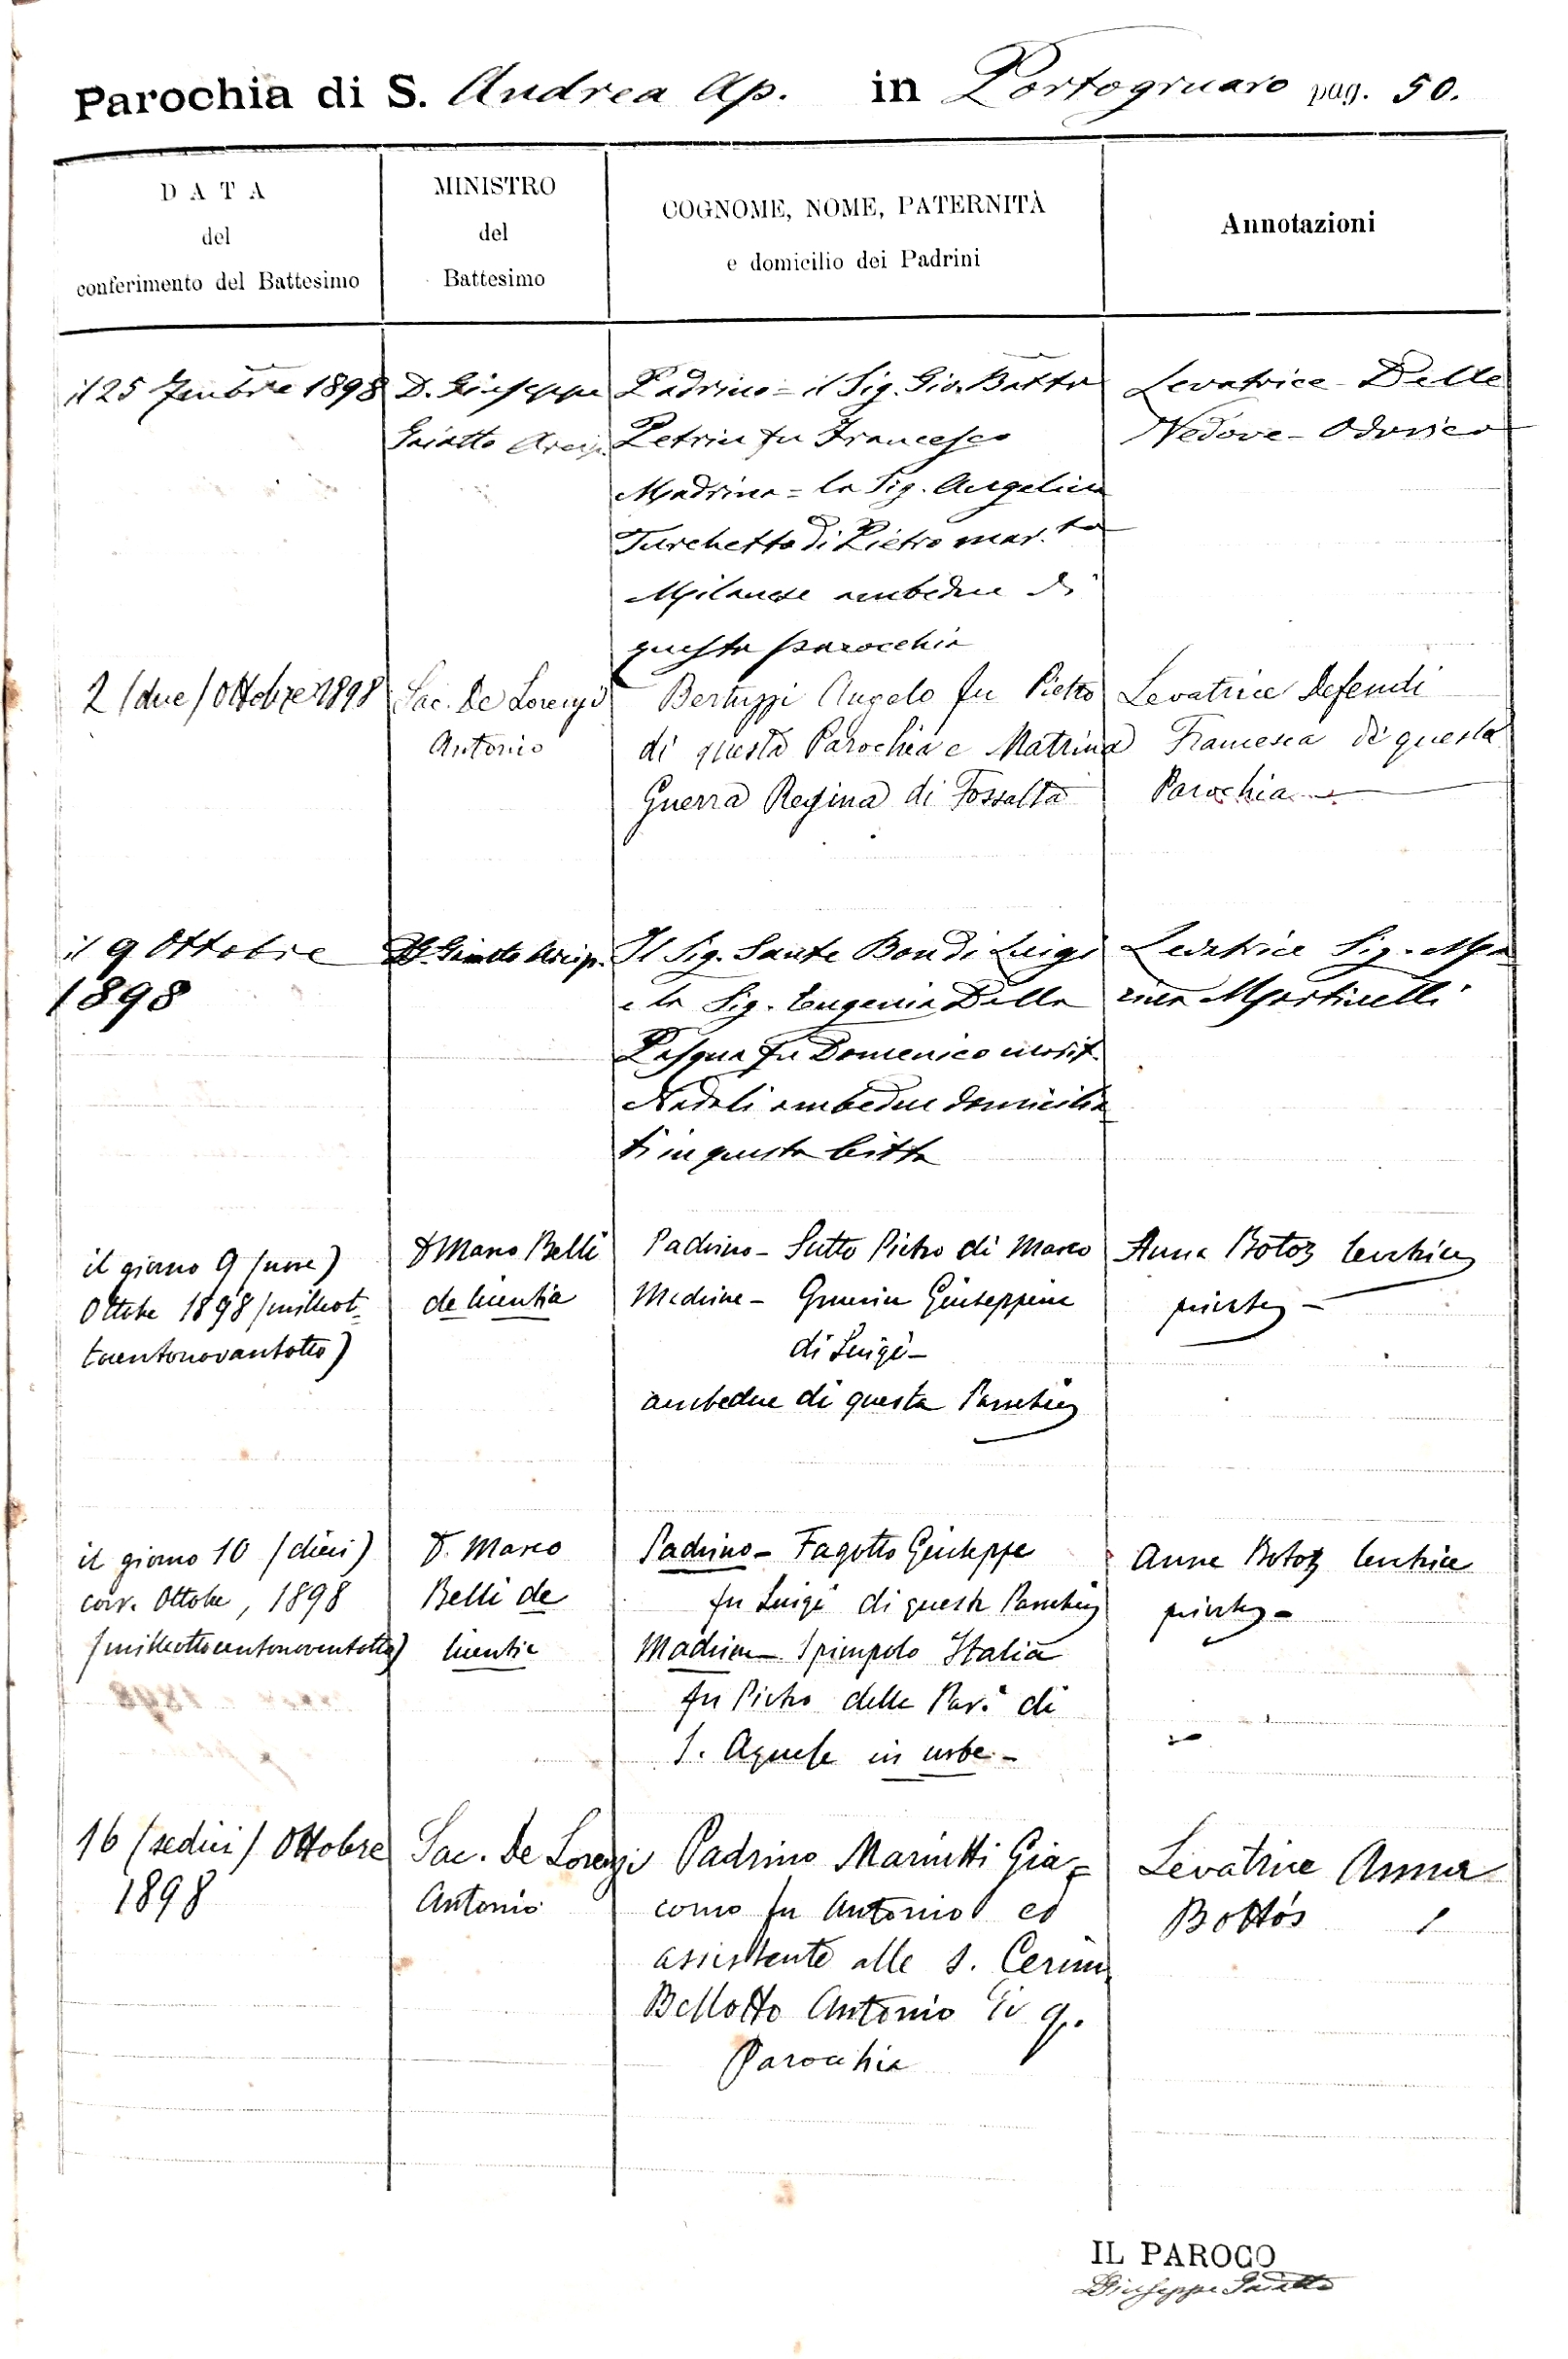 Parochia di S. Andrea Ap. in Portogruaro pag. 50.
DATA
del
conferimento del Battesimo
MINISTRO
del
Battesimo
COGNOME, NOME, PATERNITÀ
e domicilio dei Padrini
Annotazioni
il 25 7embre 1898
D. Giuseppe
Gaiatto Arcip.
Padrino = il Sig. Gio. Batta
Petrin fu Francesco
Madrina = la Sig. Angelina
Turchetto di Pietro mar.ta
Milanese ambedue di
questa parocchia
Levatrice Delle
Vedove - Odorico
2 (due) Ottobre 1898
Sac. De Lorenzi
Antonio
Bertuzzi Angelo fu Pietro
di questa Parochia e Matrina
Guerra Regina di Fossalta
Levatrice Defendi
Francesca di questa
Parochia
il 9 Ottobre
1898
D. G. Gaiatto Arcip.
Il Sig. Sante Bon di Luigi
e la Sig. Eugenia Dalla
Pasqua fu Domenico marit.
Nadali ambedue domicilia
ti in questa Città
Levatrice Sig. Ma
rina Martinelli
il giorno 9 (nove)
Ottobre 1898 (milleot-
tocentonovantotto)
D Marco Belli
de licentia
Padrino - Sutto Pietro di Marco
Madrina - Guerin Giuseppina
di Luigi -
ambedue di questa Parochia
Anna Botos levatrice
privata -
il giorno 10 (dieci)
corr. Ottobre, 1898
(milleottocentonovantotto)
D. Marco
Belli de
licentia
Padrino - Fagotto Giuseppe
fu Luigi di questa Parochia
Madrina - Spimpolo Italia
fu Pietro della Par. di
S. Agnese in urbe -
Anna Botos levatrice
privata -
16 (sedici) Ottobre
1898
Sac. De Lorenzi
Antonio
Padrino Marinitti Gia=
como fu Antonio ed
assistente alle s. Cerim.
Bellotto Antonio di q.
Parochia
Levatrice Anna
Bottós
IL PAROCO
Giuseppe Gaiatto